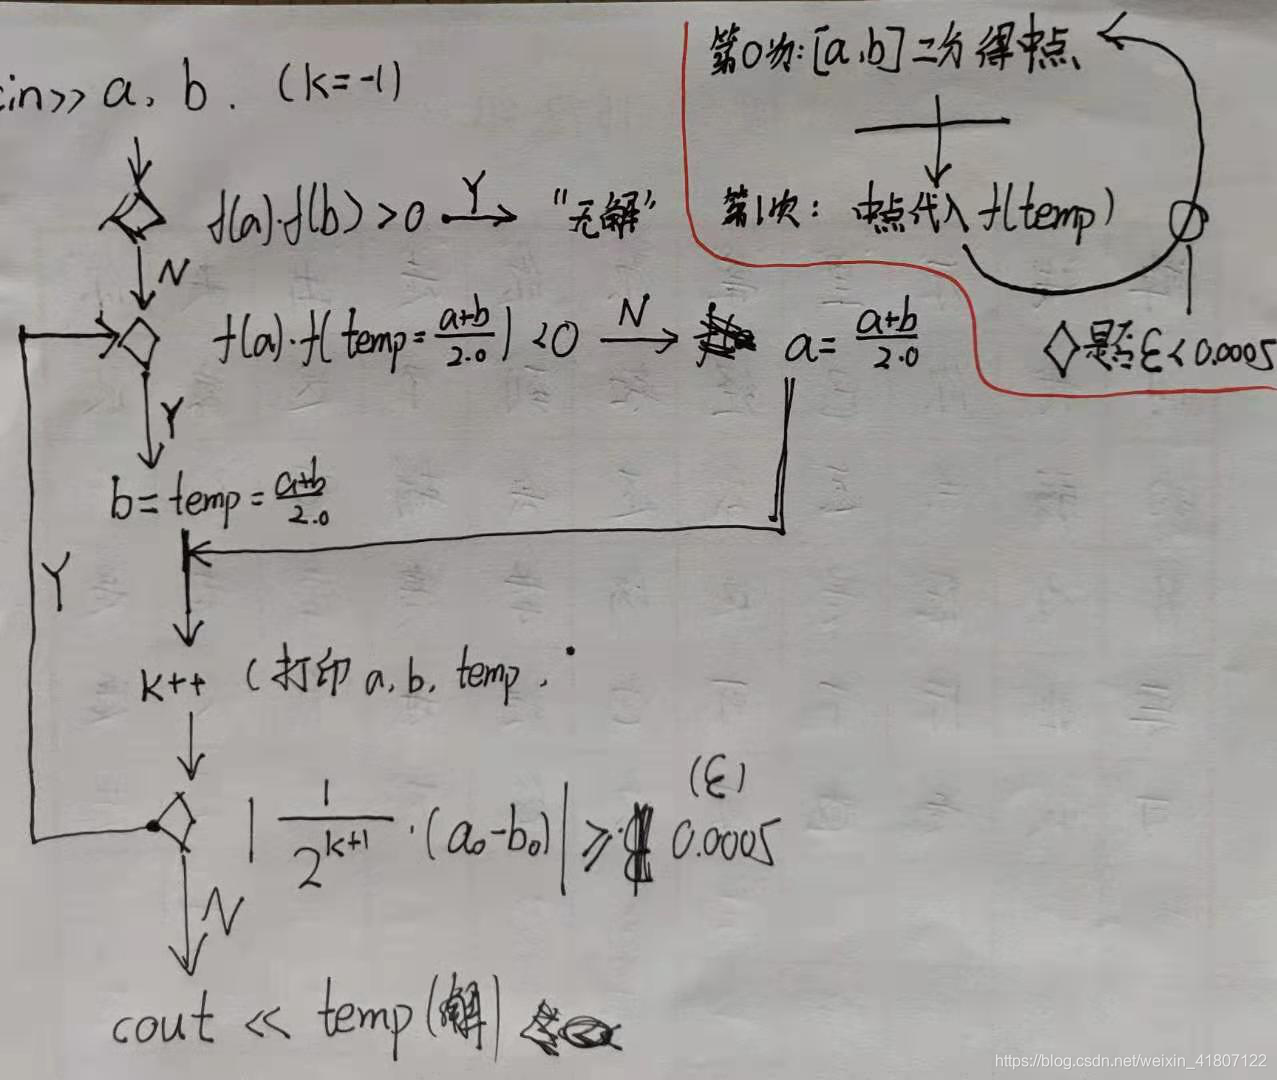 cin>> a, b. (k=-1)
f(a)·f(b)>0 Y "无解"
N
f(a)·f(temp=\frac{a+b}{2.0})<0 N a=\frac{a+b}{2.0}
Y
b=temp=\frac{a+b}{2.0}
Y
k++ (打印 a, b, temp,
|\frac{1}{2^{k+1}}·(a₀-b₀)|≥0.0005
(ε)
N
cout << temp(解)
第0次:[a,b]二分得中点
第1次: 中点代入f(temp)
是否ε<0.0005
https://blog.csdn.net/weixin_41807122